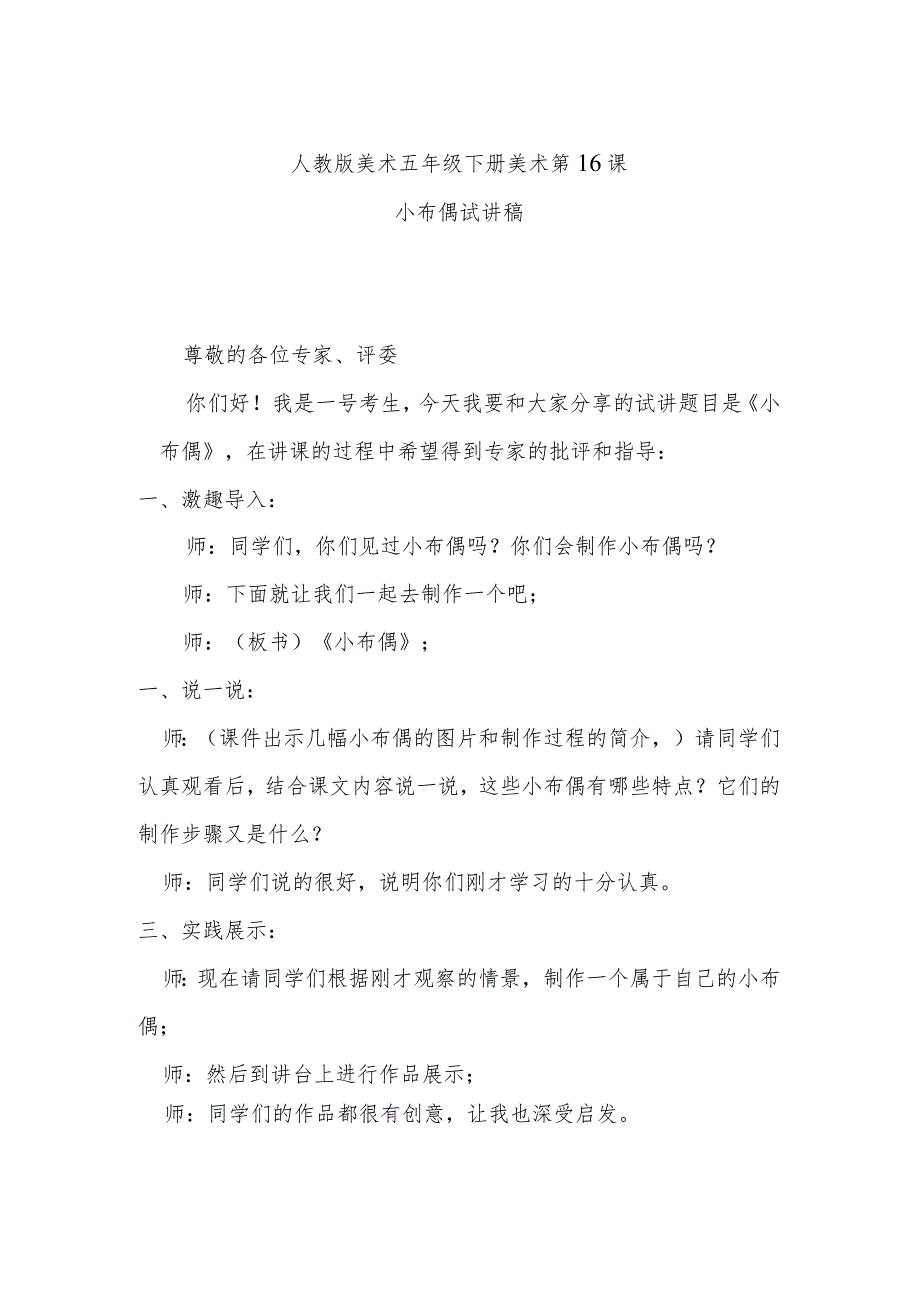 人教版美术五年级下册美术第 16 课
小布偶试讲稿
尊敬的各位专家、评委
你们好！我是一号考生，今天我要和大家分享的试讲题目是《小
布偶》，在讲课的过程中希望得到专家的批评和指导：
一、激趣导入：
师：同学们，你们见过小布偶吗？你们会制作小布偶吗？
师：下面就让我们一起去制作一个吧；
师：（板书）《小布偶》；
一、说一说：
师：（课件出示几幅小布偶的图片和制作过程的简介，）请同学们
认真观看后，结合课文内容说一说，这些小布偶有哪些特点？它们的
制作步骤又是什么？
师：同学们说的很好，说明你们刚才学习的十分认真。
三、实践展示：
师：现在请同学们根据刚才观察的情景，制作一个属于自己的小布
偶；
师：然后到讲台上进行作品展示；
师：同学们的作品都很有创意，让我也深受启发。